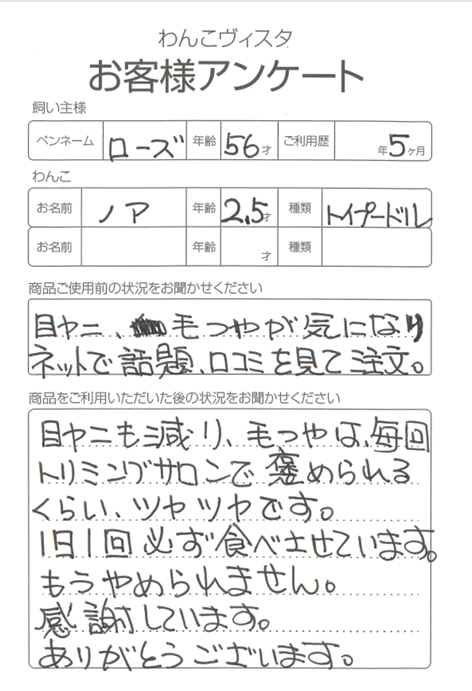 わんこヴィスタ
お客様アンケート
飼い主様
ペンネーム ローズ 年齢 56才 ご利用歴 年5ヶ月
わんこ
お名前 ノア 年齢 2.5才 種類 トイプードル
お名前 年齢 才 種類
商品ご使用前の状況をお聞かせください
目ヤニ、毛つやが気になり
ネットで話題、口コミを見て注文。
商品をご利用いただいた後の状況をお聞かせください
目ヤニも減り、毛つやは、毎回
トリミングサロンで褒められる
くらい、ツヤツヤです。
1日1回必ず食べさせています。
もうやめられません。
感謝しています。
ありがとうございます。